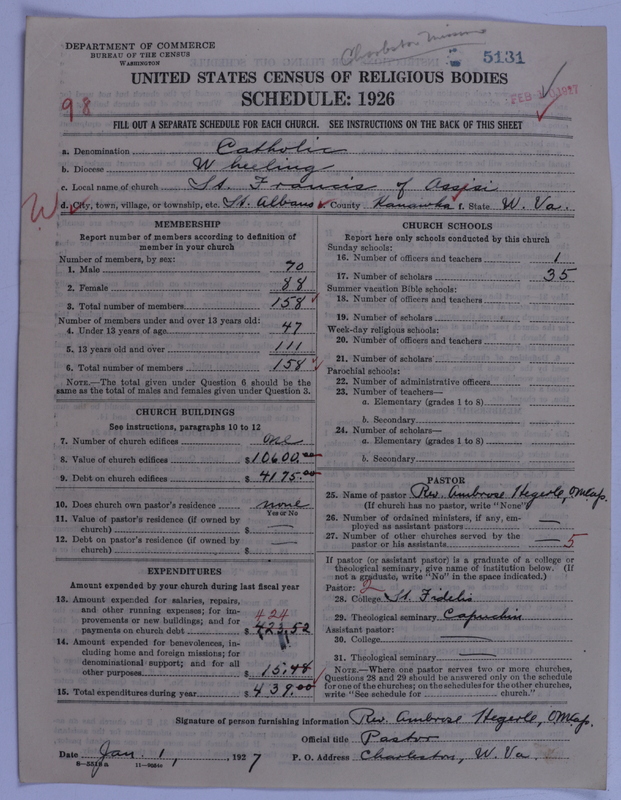 DEPARTMENT OF COMMERCE
BUREAU OF THE CENSUS
WASHINGTON
Charleston Mission
5131
UNITED STATES CENSUS OF RELIGIOUS BODIES
SCHEDULE: 1926
98
FEB 1927
FILL OUT A SEPARATE SCHEDULE FOR EACH CHURCH. SEE INSTRUCTIONS ON THE BACK OF THIS SHEET
a. Denomination Catholic
b. Diocese Wheeling
c. Local name of church St. Francis of Assisi
d. City, town, village, or township, etc. St. Albans e. County Kanawha f. State W. Va.
MEMBERSHIP
Report number of members according to definition of
member in your church
Number of members, by sex:
1. Male 70
2. Female 88
3. Total number of members 158
Number of members under and over 13 years old:
4. Under 13 years of age 47
5. 13 years old and over 111
6. Total number of members 158
NOTE.—The total given under Question 6 should be the
same as the total of males and females given under Question 3.
CHURCH BUILDINGS
See instructions, paragraphs 10 to 12
7. Number of church edifices one
8. Value of church edifices $10600.00
9. Debt on church edifices $4175.00
10. Does church own pastor's residence none
Yes or No
11. Value of pastor's residence (if owned by
church) $ —
12. Debt on pastor's residence (if owned by
church) $ —
EXPENDITURES
Amount expended by your church during last fiscal year
13. Amount expended for salaries, repairs,
and other running expenses; for im-
provements or new buildings; and for 424
payments on church debt $423.52
14. Amount expended for benevolences, in-
cluding home and foreign missions; for
denominational support; and for all
other purposes $15.48
15. Total expenditures during year $439.00
CHURCH SCHOOLS
Report here only schools conducted by this church
Sunday schools:
16. Number of officers and teachers 1
17. Number of scholars 35
Summer vacation Bible schools:
18. Number of officers and teachers
19. Number of scholars
Week-day religious schools:
20. Number of officers and teachers
21. Number of scholars
Parochial schools:
22. Number of administrative officers
23. Number of teachers—
a. Elementary (grades 1 to 8)
b. Secondary
24. Number of scholars—
a. Elementary (grades 1 to 8)
b. Secondary
PASTOR
25. Name of pastor Rev. Ambrose Hegerle, O.M.Cap.
(If church has no pastor, write "None")
26. Number of ordained ministers, if any, em-
ployed as assistant pastors —
27. Number of other churches served by the
pastor or his assistants — 5
If pastor (or assistant pastor) is a graduate of a college or
theological seminary, give name of institution below. (If
not a graduate, write "No" in the space indicated.)
Pastor: 2
28. College St. Fidelis
29. Theological seminary Capuchin
Assistant pastor:
30. College —
31. Theological seminary —
NOTE.—Where one pastor serves two or more churches,
Questions 28 and 29 should be answered only on the schedule
for one of the churches; on the schedules for the other churches,
write "See schedule for church."
Signature of person furnishing information Rev. Ambrose Hegerle, O.M.Cap.
Official title Pastor
Date Jan. 1, 1927 P. O. Address Charleston, W. Va.